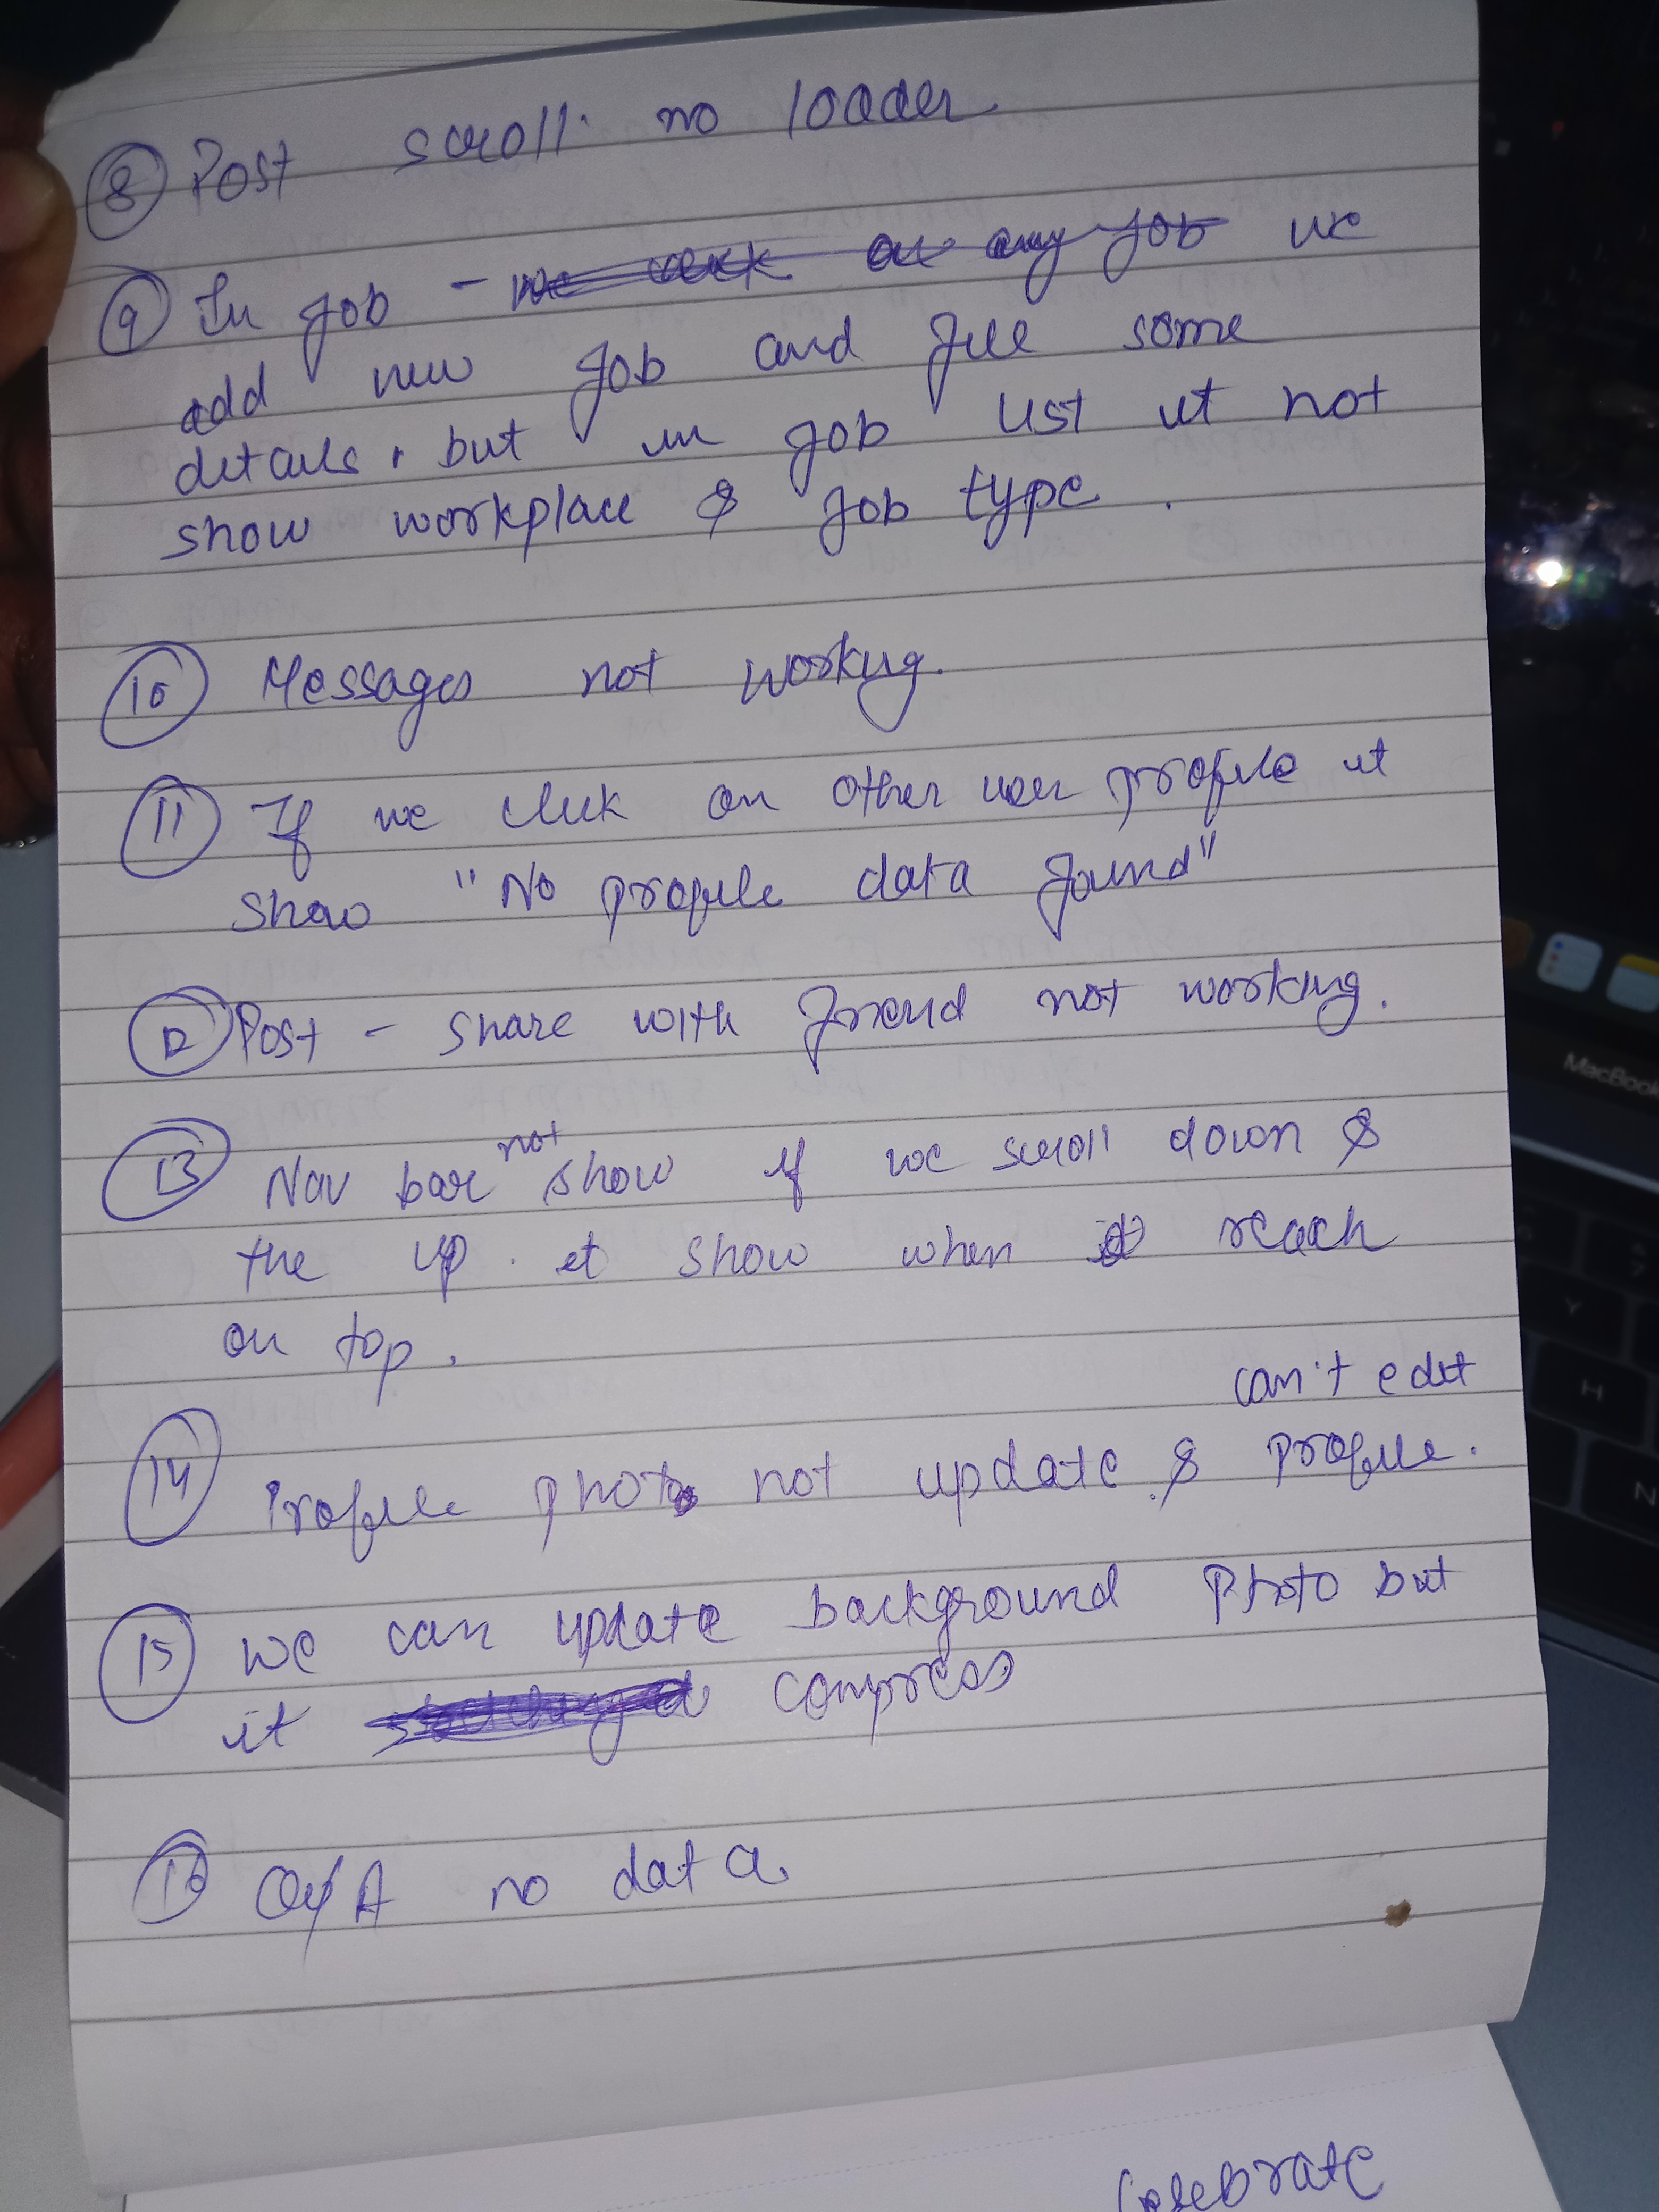 8 Post scroll. no loader
9 In Job - we click on any Job we
add new Job and fill some
details, but in Job list it not
show workplace & Job type.
10 Messages not working.
11 If we click on other user profile it
show "No profile data found"
12 Post - share with friend not working.
13 Nav bar not show if we scroll down &
the up. it show when reach
on top.
can't edit
14 Profile photo not update & profile.
15 we can update background photo but
it compress
16 Q/A no data
MacBook
Y
H
N
Celebrate